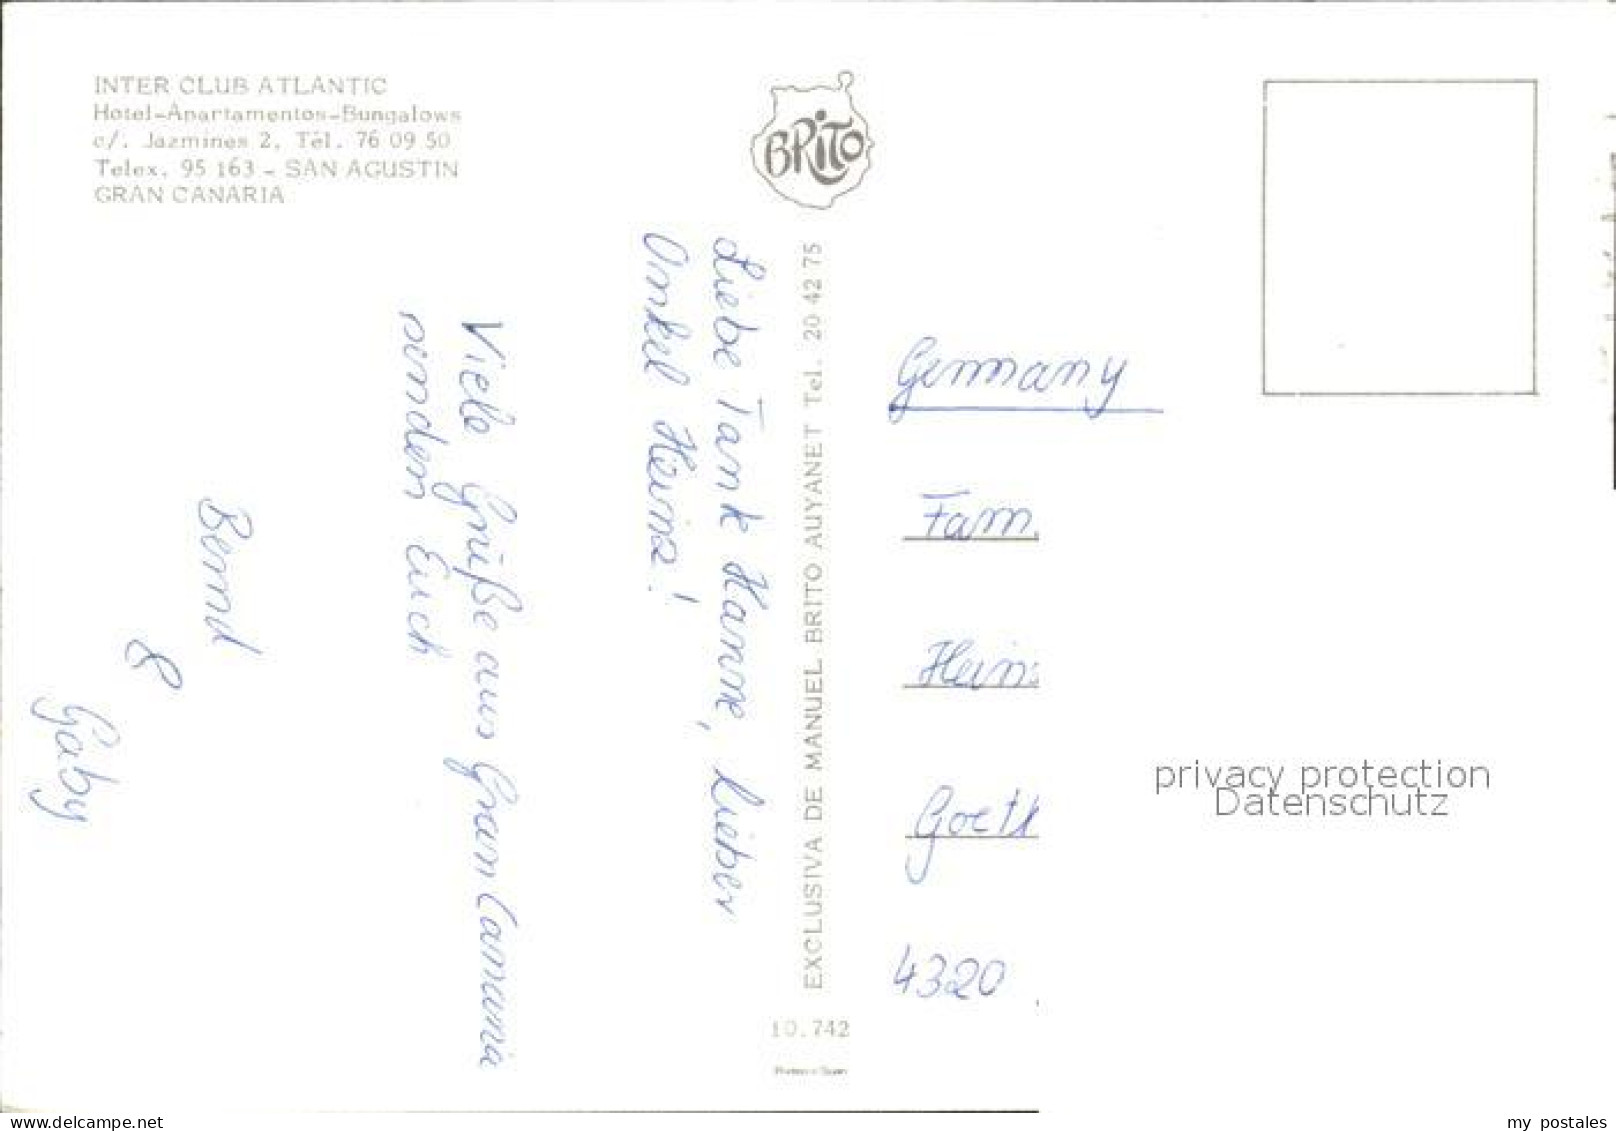 INTER CLUB ATLANTIC
Hotel-Apartamentos-Bungalows
c/. Jazmines 2. Tél. 76 09 50
Telex. 95 163 - SAN AGUSTIN
GRAN CANARIA
BRITO
Liebe Tante Hanne, lieber
Onkel Heinz!
Viele Grüße aus Gran Canaria
senden Euch
Bernd
&
Gaby
EXCLUSIVA DE MANUEL BRITO AUYANET Tel. 20 42 75
10.742
Printed in Spain
Germany
Fam.
Heinz
Goeth
4320
privacy protection
Datenschutz
delcampe.net
my_postales